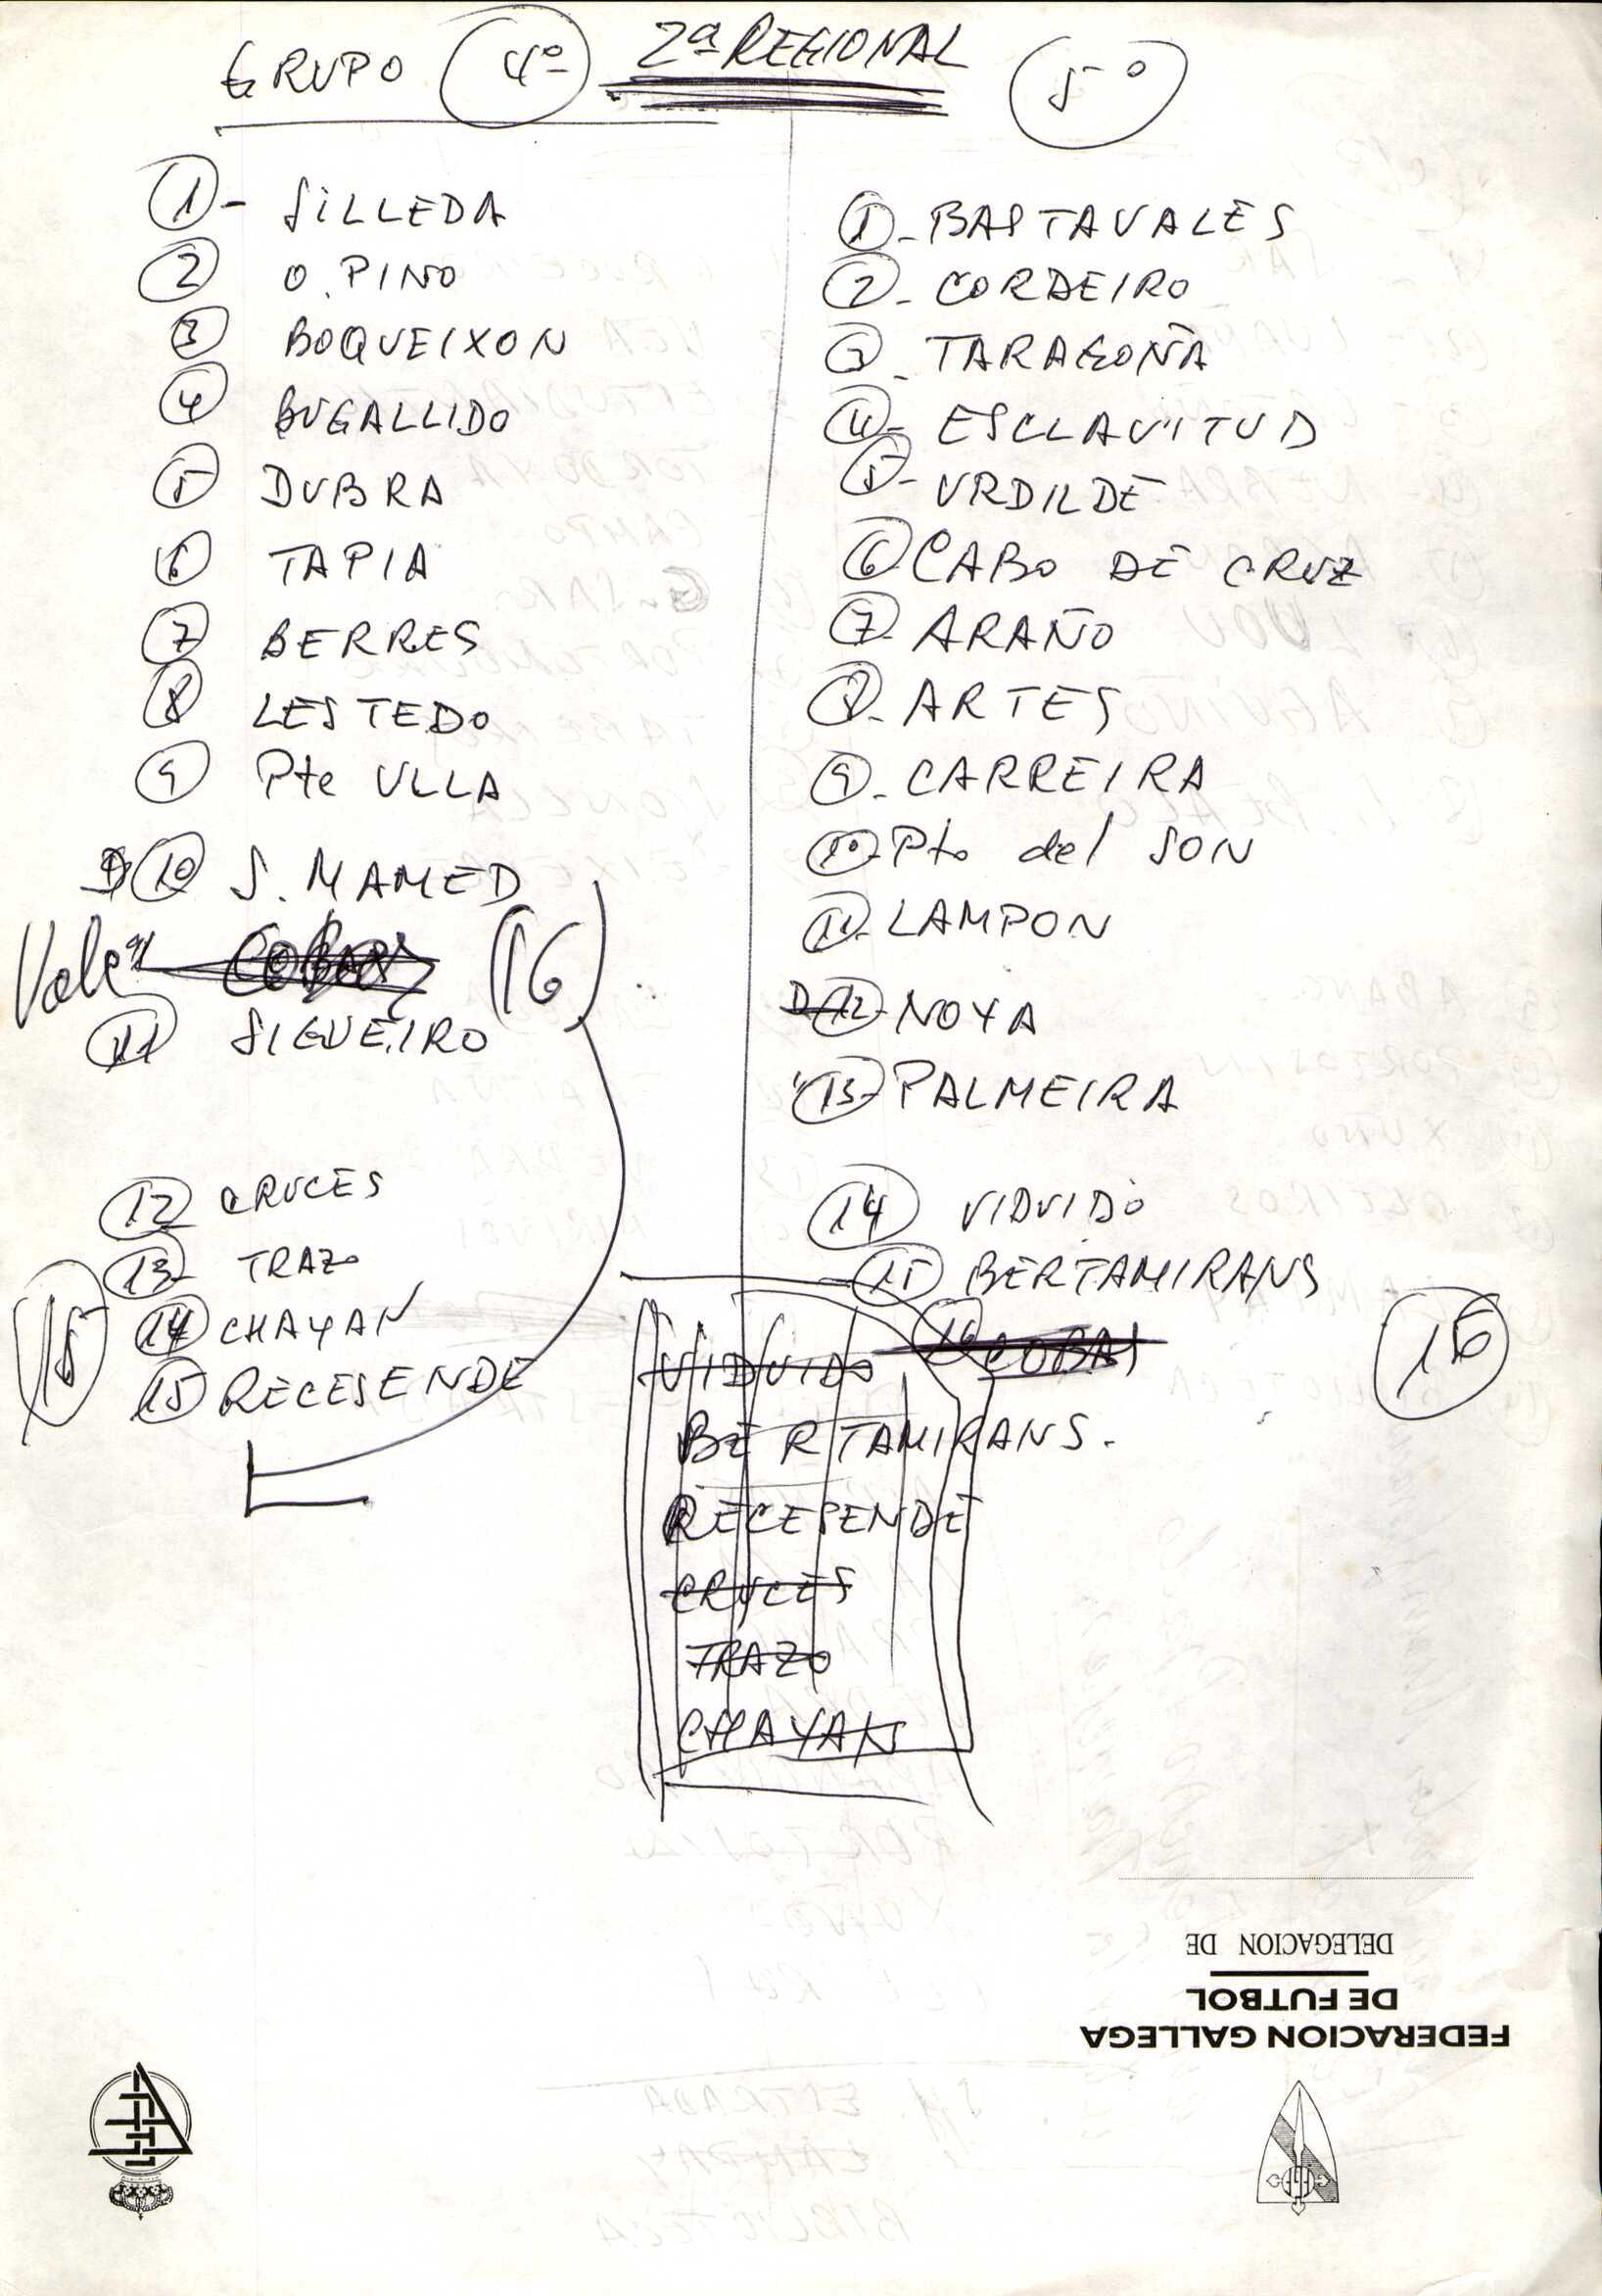 GRUPO 4º 2ª REGIONAL 5º
1 - SILLEDA
2 O. PINO
3 BOQUEIXON
4 BUGALLIDO
5 DUBRA
6 TAPIA
7 BERRES
8 LESTEDO
9 Pte ULLA
10 S. MAMED
COBAS (16)
11 SIGUEIRO
12 CRUCES
13 TRAZO
14 CHAYAN
15 RECESENDE
15
1 - BASTAVALES
2 - CORDEIRO
3 - TARAGOÑA
4 - ESCLAVITUD
5 - URDILDE
6 CABO DE CRUZ
7 - ARAÑO
8 - ARTES
9 - CARREIRA
10 - Pto del SON
11 - LAMPON
D 12 - NOYA
13 - PALMEIRA
14 VIDUIDO
15 BERTAMIRANS
16 COBAS
16
VIDUIDO
BERTAMIRANS.
RECESENDE
CRUCES
TRAZO
CHAYAN
FEDERACION GALLEGA
DE FUTBOL
DELEGACION DE